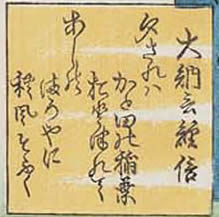 大納言経信
夕されハ
かと田の稲葉
おとつれて
あしの
まろやに
秋風そふく